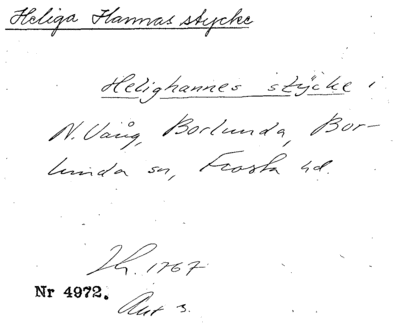 Heliga Hannas stycke
Helighannes stÿcke i
N. Vång, Borlunda, Bor-
lunda sn, Frosta hd.
Lh. 1767
Nr 4972.
Akt 3.